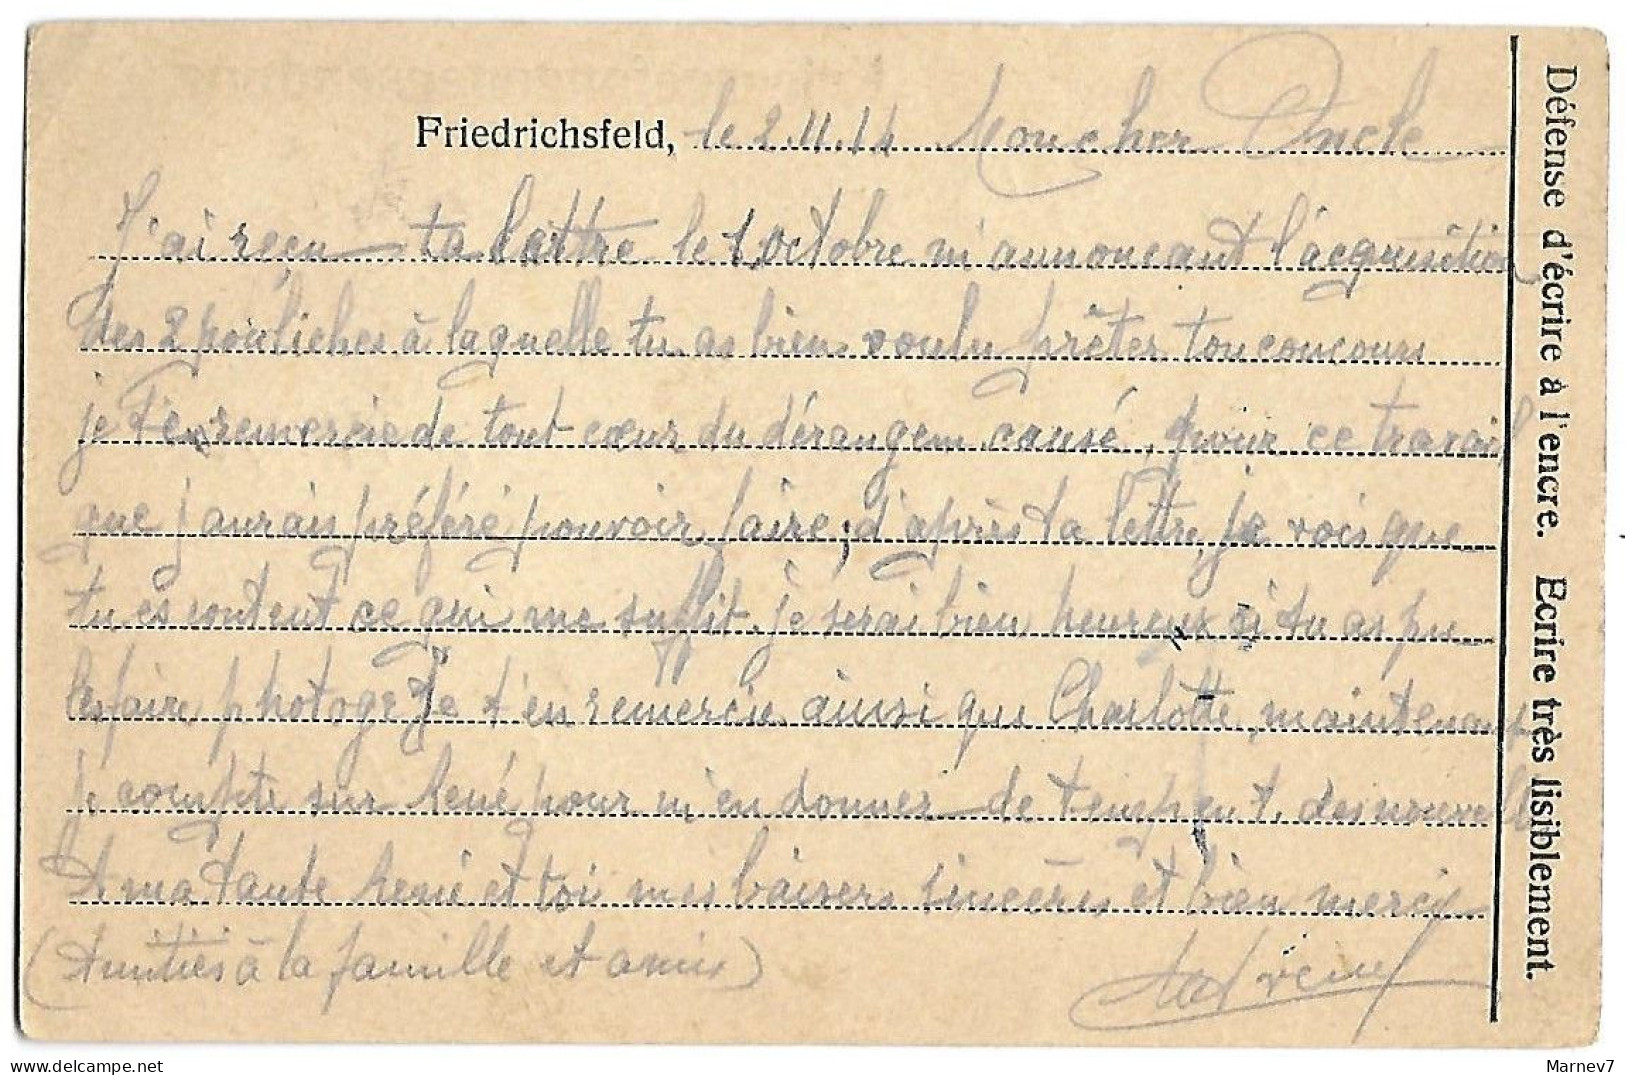 Friedrichsfeld, le 2.11.14 Mon cher Oncle
J'ai reçu ta lettre le 1 octobre m'annonçant l'acquisition
des 2 pouliches à laquelle tu as bien voulu prêter ton concours
je t'en remercie de tout cœur du dérangem causé, pour ce travail
que j'aurais préféré pouvoir faire; d'après ta lettre, je vois que
tu es content ce qui me suffit. je serai bien heureux si tu as pu
les faire photogr Je t'en remercie ainsi que Charlotte, maintenant
je compte sur René pour m'en donner de temps en t. des nouvelles
A ma tante René et toi mes baisers sincères et bien merci
(Amitiés à la famille et amis)
Défense d'écrire à l'encre. Ecrire très lisiblement.
Marnev7